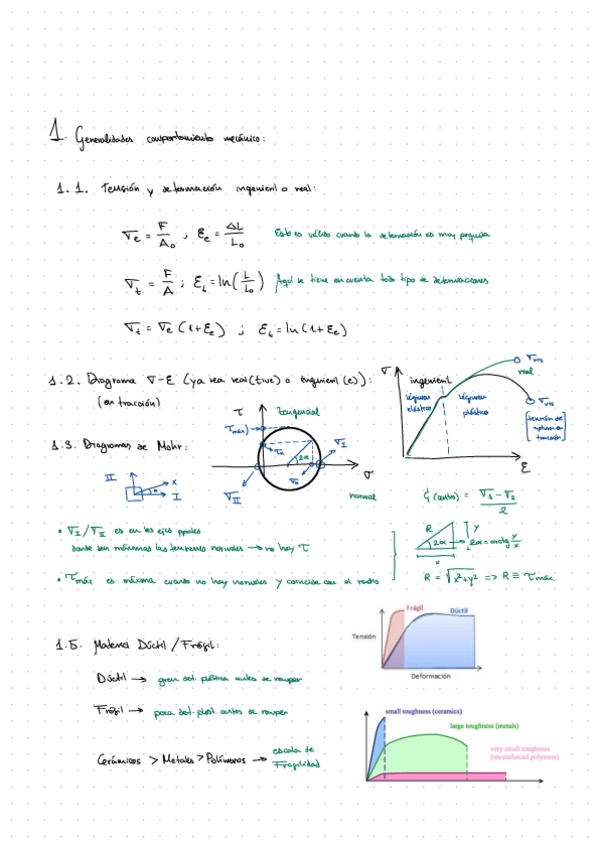 1. Generalidades comportamiento mecánico:
1.1. Tensión y deformación ingenieril o real:
σe = F/A₀ ; εe = ΔL/L₀ Esto es válido cuando la deformación es muy pequeña
σt = F/A ; εt = ln(L/L₀) Aquí se tiene en cuenta todo tipo de deformaciones
σt = σe (1+εe) ; εt = ln(1+εe)
1.2. Diagrama σ-ε (ya sea real (true) o ingenieril (e)):
(en tracción)
σ
ingenieril
real
σUTS
σUTS
régimen elástico
régimen plástico
[tensión de rotura a tracción]
ε
1.3. Diagramas de Mohr:
τ tangencial
τmáx)
2α
σI
σII
σ
normal
II
x
I
G (centro) = (σ1 - σ2)/2
• σI/σII es en los ejes ppales
donde son máximas las tensiones normales → no hay τ
• τmáx es máxima cuando no hay normales y coincide con el radio
R
y
2α → 2α = arctg y/x
x
R = √x²+y² => R ≡ τmáx
1.5. Material Dúctil/Frágil:
Dúctil → gran def. plástica antes de romper
Frágil → poca def. plást. antes de romper
Cerámicos > Metales > Polímeros → escala de Fragilidad
Frágil
Dúctil
Tensión
Deformación
small toughness (ceramics)
large toughness (metals)
very small toughness
(unreinforced polymers)